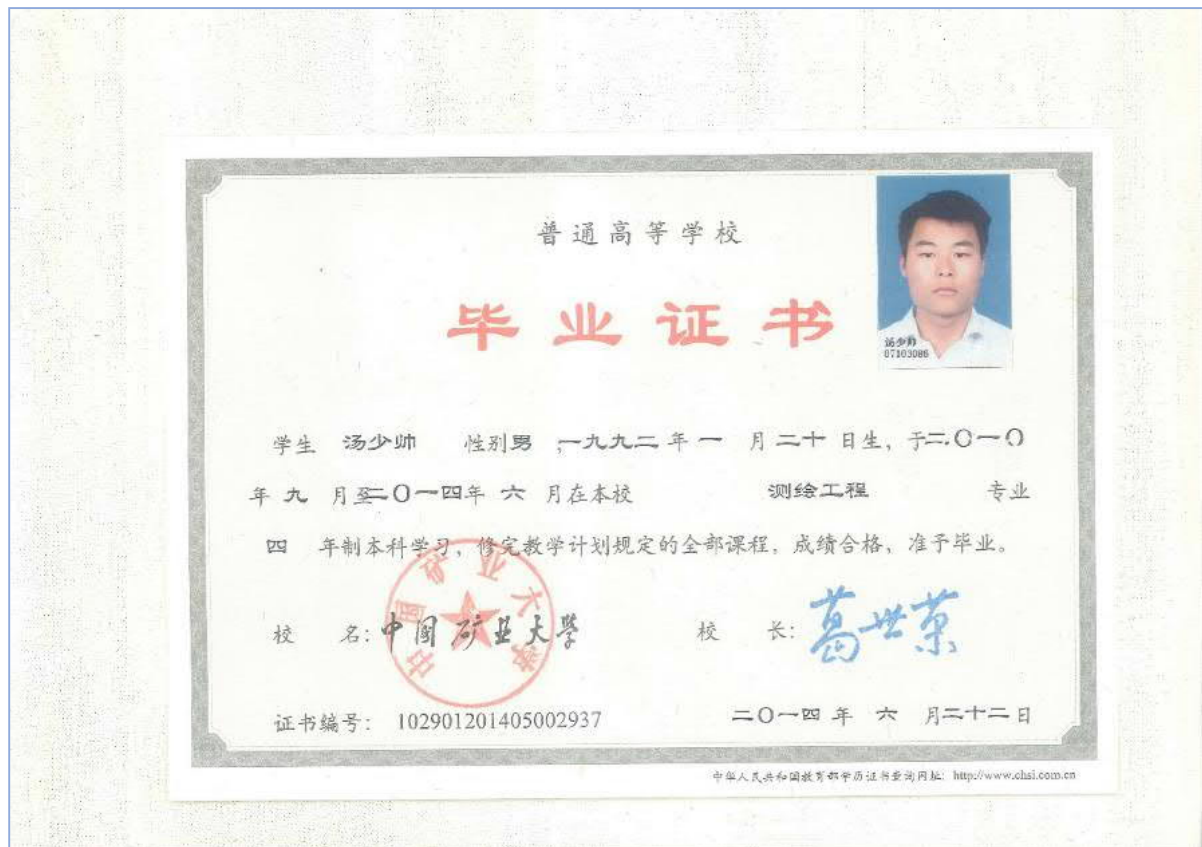 普通高等学校
毕业证书
汤少帅
07103086
学生 汤少帅 性别男，一九九二年一月二十日生，于二〇一〇
年九月至二〇一四年六月在本校 测绘工程 专业
四年制本科学习，修完教学计划规定的全部课程，成绩合格，准予毕业。
中国矿业大学
校 名：中国矿业大学 校 长：葛世荣
证书编号： 102901201405002937 二〇一四年六月二十二日
中华人民共和国教育部学历证书查询网址： http://www.chsi.com.cn